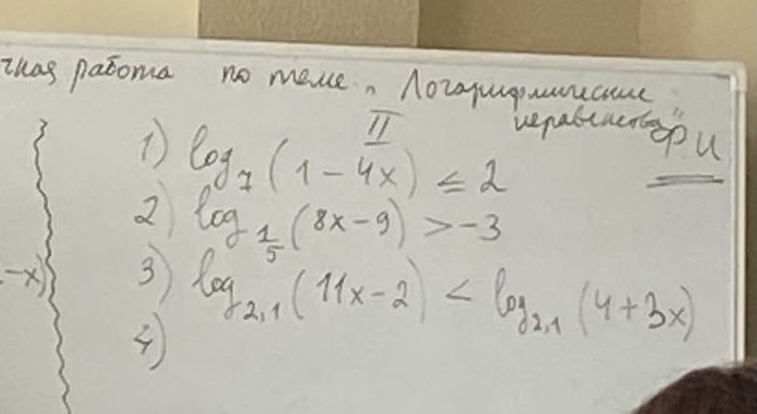 чная работа по теме „ Логарифмические
неравенства"
ФИ
II
1) log₇ (1 - 4x) ≤ 2
2) log_{1/5} (8x - 9) > -3
-x)
3) log_{2,1} (11x - 2) < log_{2,1} (4 + 3x)
4)